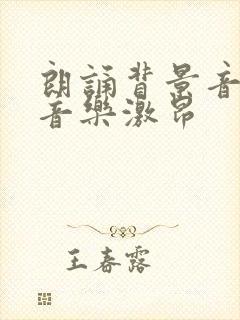 朗誦背景音
音樂激昂
王春露